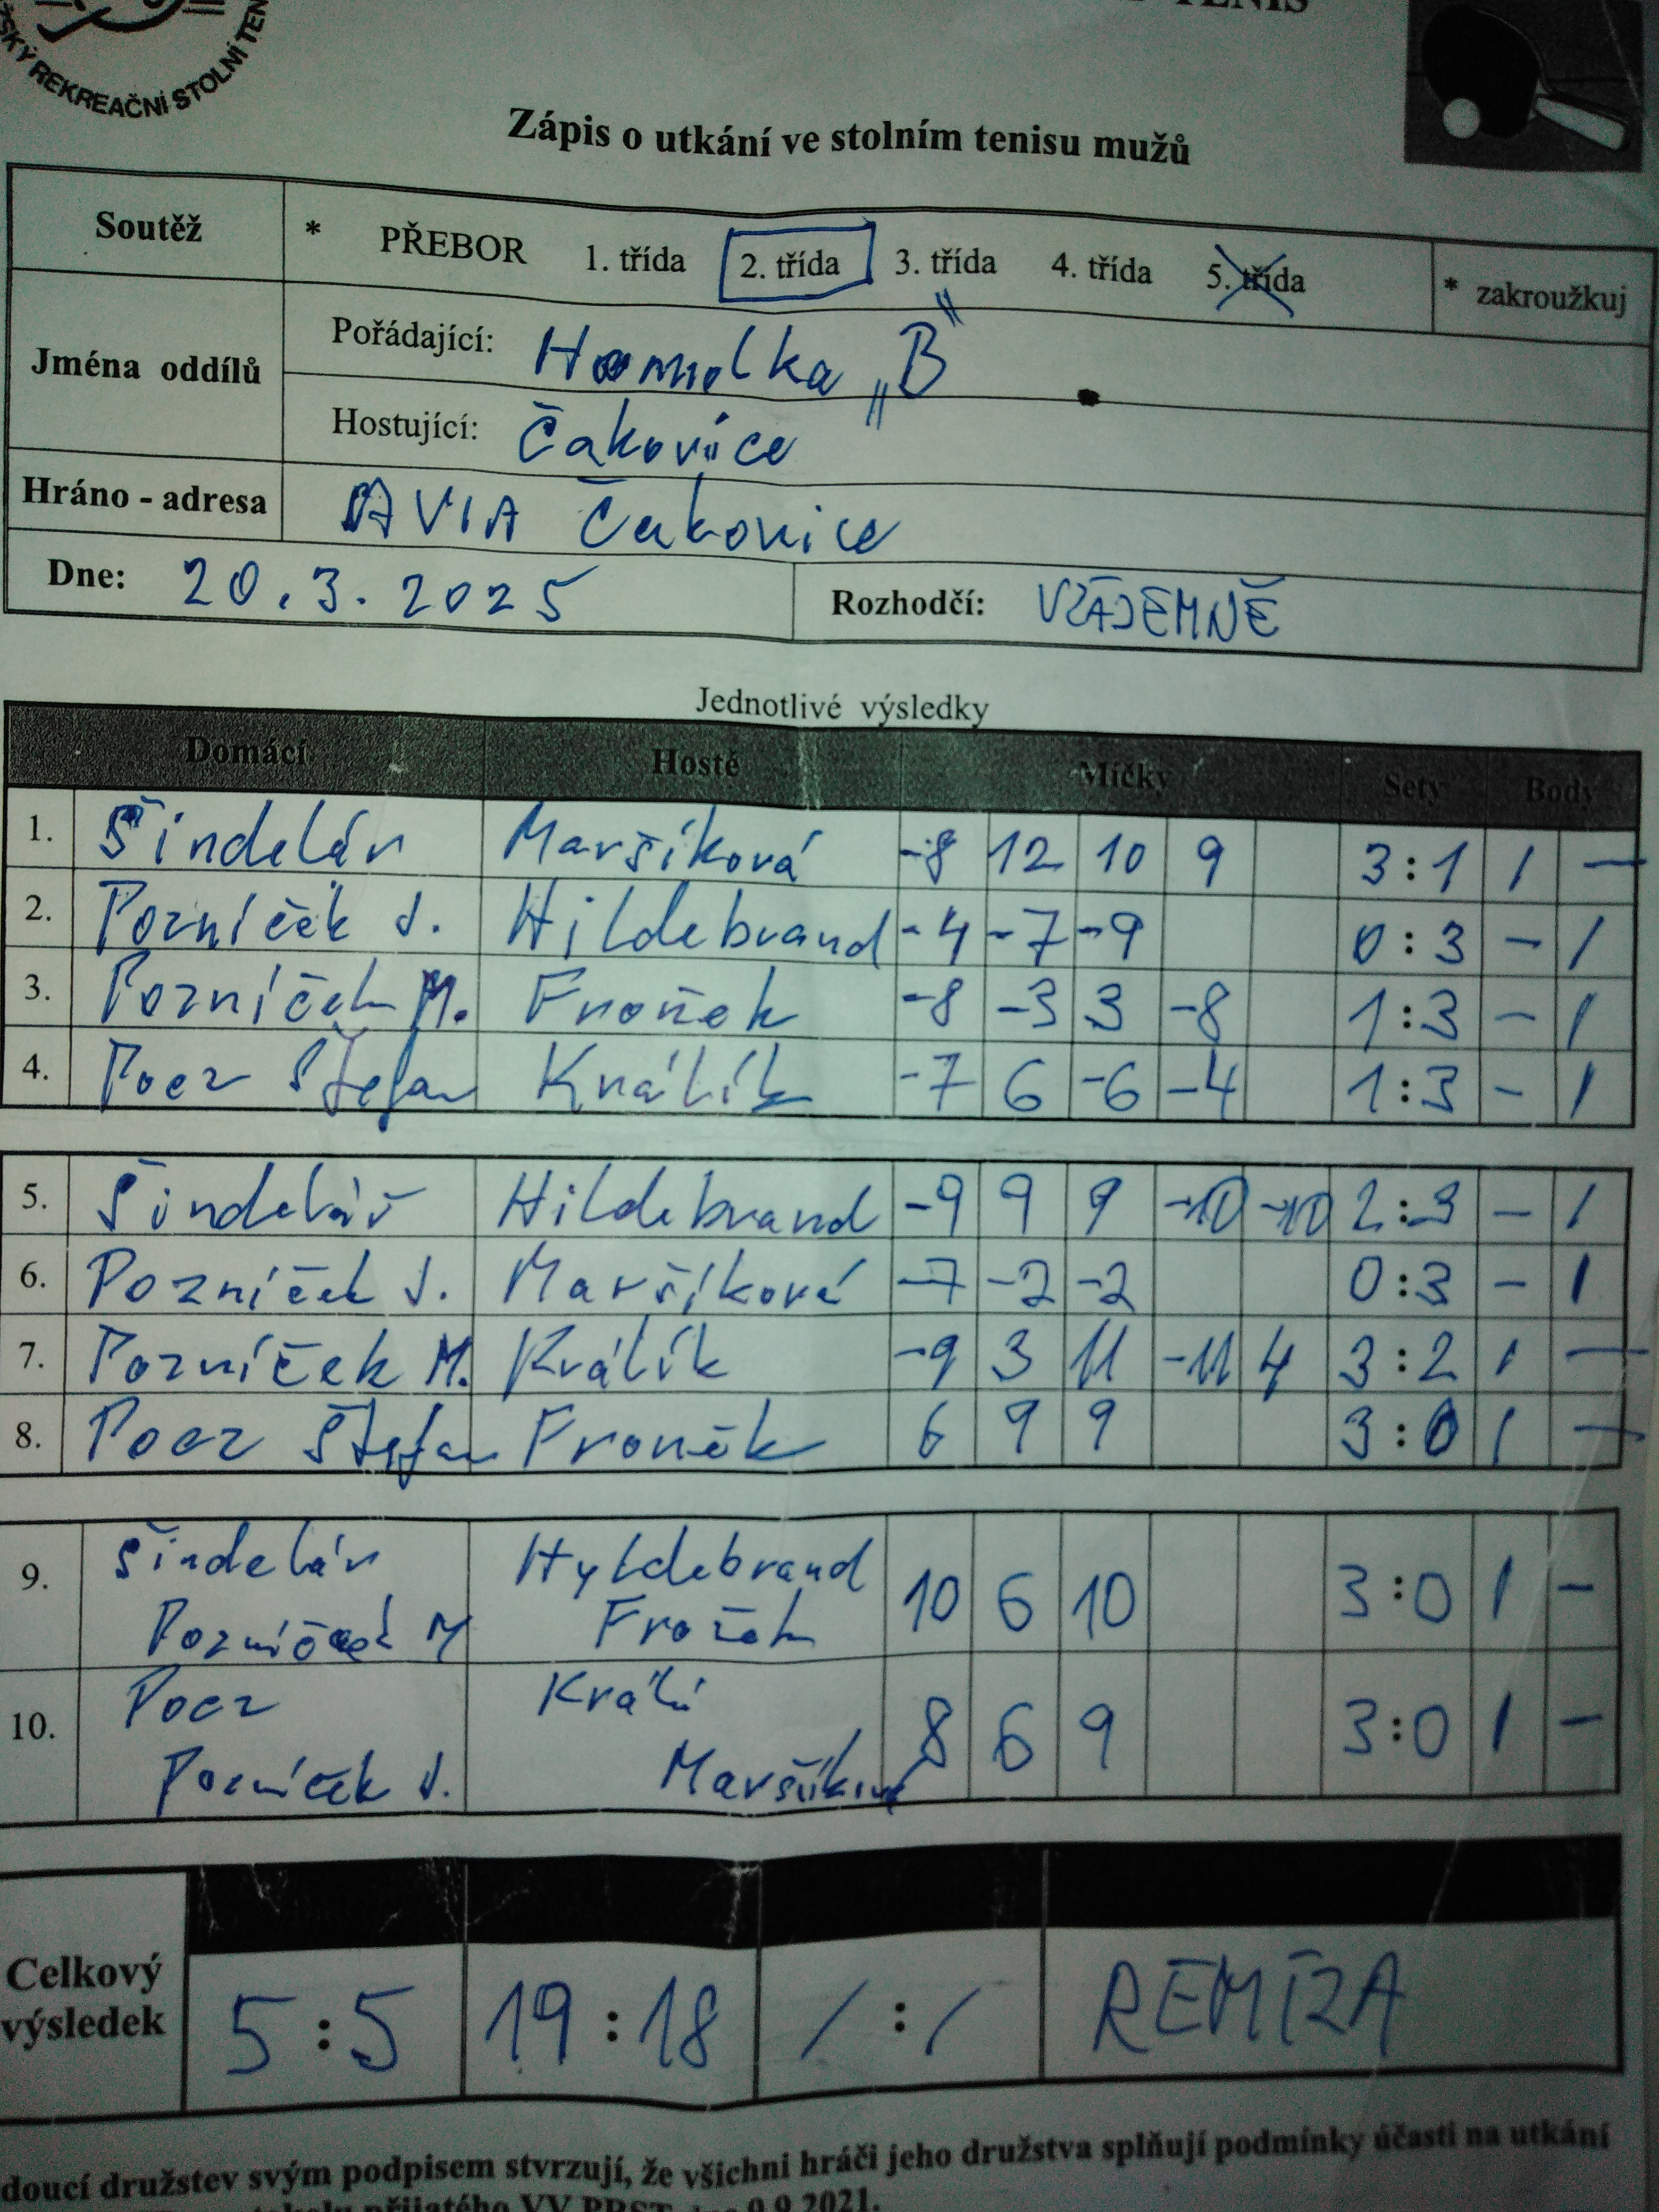 SKÝ REKREAČNÍ STOLNÍ TEN
TENIS
Zápis o utkání ve stolním tenisu mužů
Soutěž * PŘEBOR 1. třída 2. třída 3. třída 4. třída 5. třída * zakroužkuj
Jména oddílů
Pořádající: Homolka „B"
Hostující: Čakovice
Hráno - adresa AVIA Čakovice
Dne: 20.3.2025 Rozhodčí: VZÁJEMNĚ
Jednotlivé výsledky
Domácí Hosté Míčky Sety Body
1. Šindelář Maršíková -8 12 10 9 3:1 1 -
2. Pozníček J. Hildebrand -4 -7 -9 0:3 - 1
3. Pozníček M. Froněk -8 -3 3 -8 1:3 - 1
4. Pocz Štefan Králík -7 6 -6 -4 1:3 - 1
5. Šindelář Hildebrand -9 9 9 -10 -10 2:3 - 1
6. Pozníček J. Maršíková -7 -2 -2 0:3 - 1
7. Pozníček M. Králík -9 3 11 -11 4 3:2 1 -
8. Pocz Štefan Froněk 6 9 9 3:0 1 -
9. Šindelář Hyldebrand 10 6 10 3:0 1 -
Pozníček M Froněk
10. Pocz Králí 8 6 9 3:0 1 -
Pozníček J. Maršíková
Celkový výsledek 5:5 19:18 / : / REMÍZA
doucí družstev svým podpisem stvrzují, že všichni hráči jeho družstva splňují podmínky účasti na utkání
přijatého VV PRST 9.9.2021.